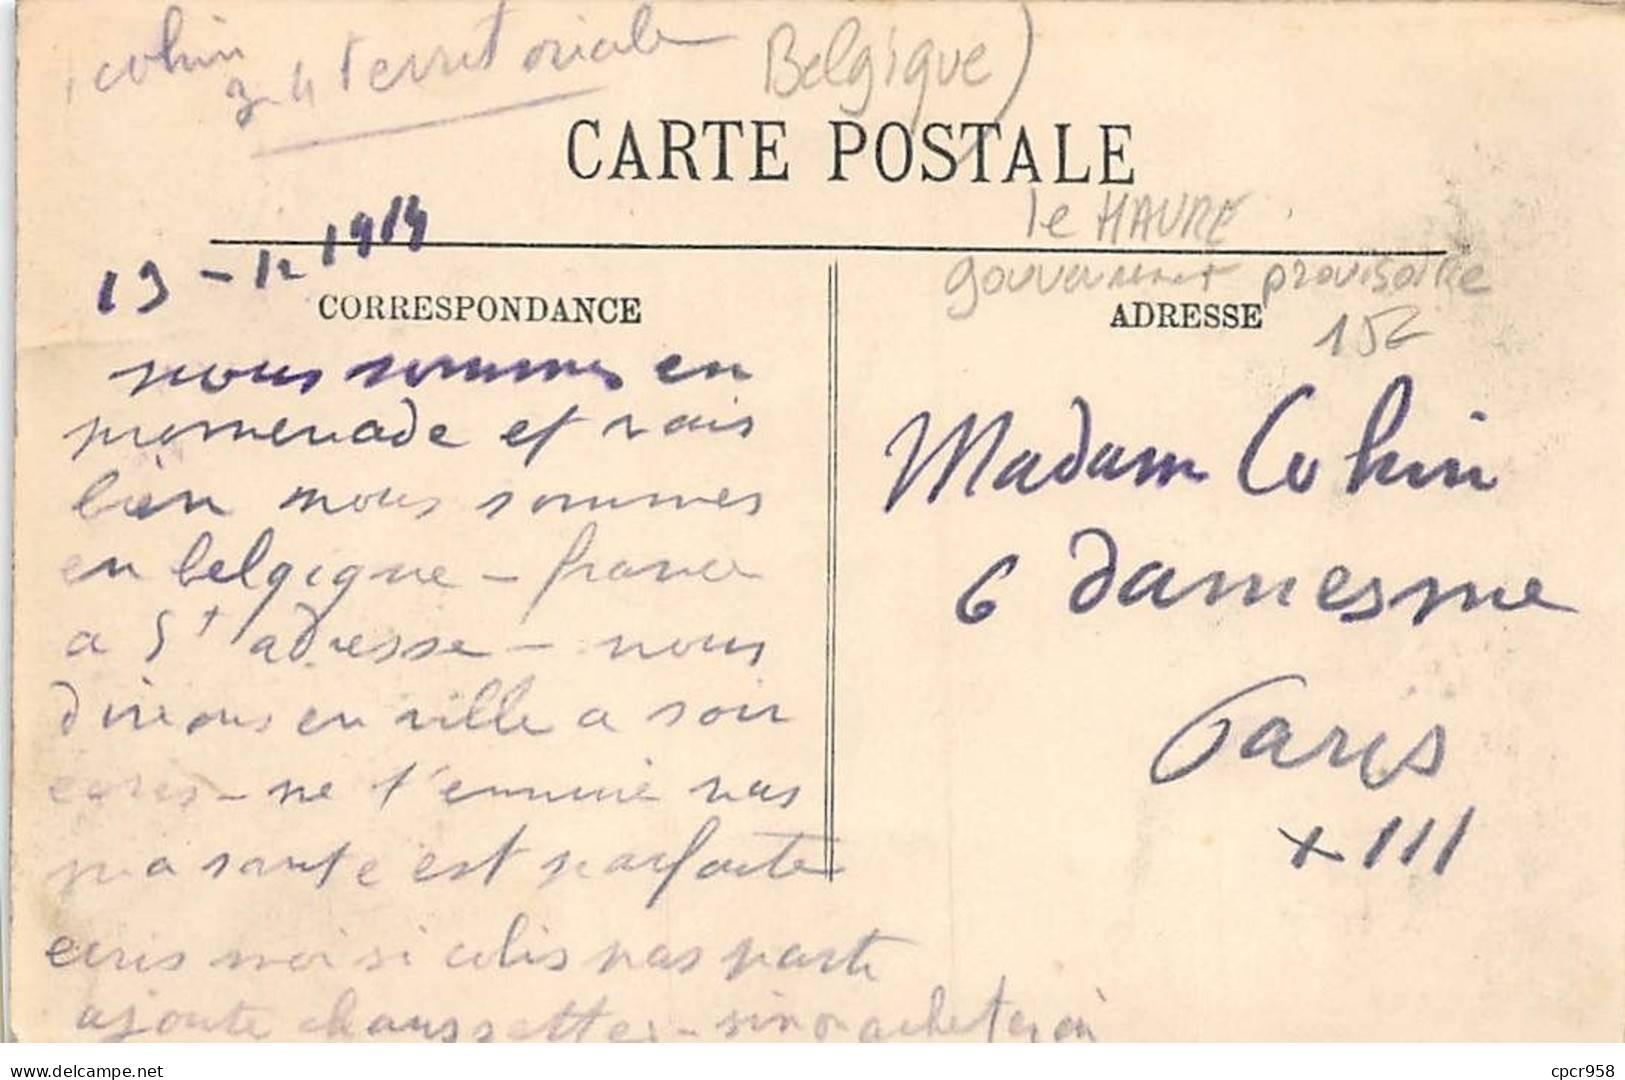 cohin
34 territoriale
Belgique)
CARTE POSTALE
le HAVRE
gouvernement provisoire
15€
13-12 1914
CORRESPONDANCE
ADRESSE
nous sommes en
promenade et vais
bien nous sommes
en belgique - france
a St adresse - nous
dinons en ville a soir
ecris - ne t'ennuie pas
ma sante est parfaite
ecris moi si colis pas parti
ajoute chaussettes - sinon acheter
Madam Cohin
6 damesme
Paris
XIII
Delcampe.net
cpcr958